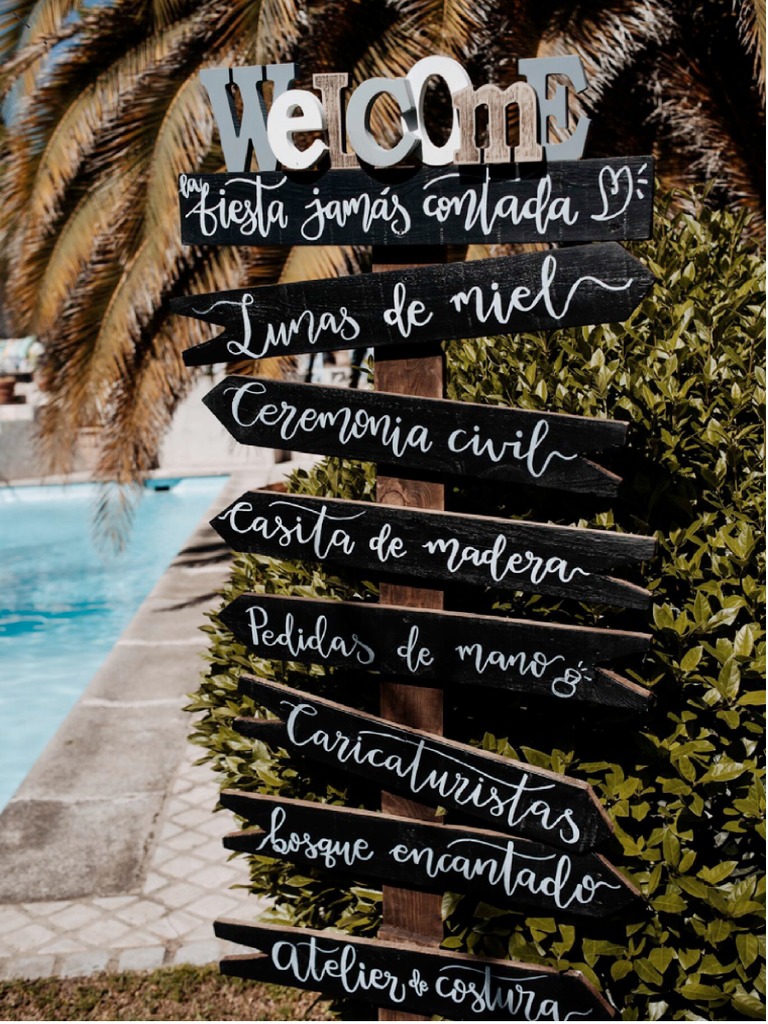 WelcomE
la fiesta jamás contada
Lunas de miel
Ceremonia civil
Casita de madera
Pedidas de mano
Caricaturistas
bosque encantado
atelier de costura